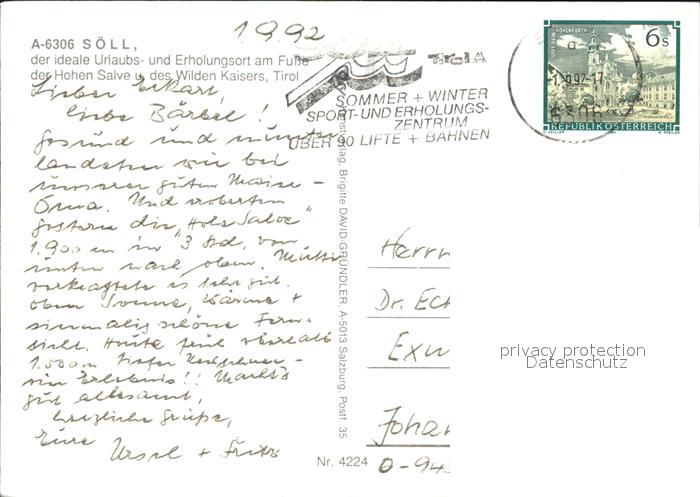 1.9.92
A-6306 SÖLL,
der ideale Urlaubs- und Erholungsort am Fuße
der Hohen Salve u. des Wilden Kaisers, Tirol
Lieber Eckart,
liebe Bärbel!
Gesund und munter
landeten wir bei
unserer guten Maise-
Oma. Und eroberten
gestern die "Hohe Salve"
1.900 m in 3 Std. von
unten nach oben. Mutti
verkraftete es sehr gut.
oben Sonne, Wärme +
einmalig schöne Fern-
sicht. Heute früh oberhalb
1.500 m tiefer
ein Erlebnis!! Macht's
gut allesamt,
herzliche Grüße,
Eure
Ursel + Fritz
Tirol A
SOMMER + WINTER
SPORT- UND ERHOLUNGS-
ZENTRUM
ÜBER 90 LIFTE + BAHNEN
Brigitte DAVID-GRÜNDLER, A-5013 Salzburg, Postf. 35
Nr. 4224
6 S
-1.-9.92-17
6306
REPUBLIK ÖSTERREICH
Herrn
Dr. Eck
Exw
Johan
D-94
privacy protection
Datenschutz